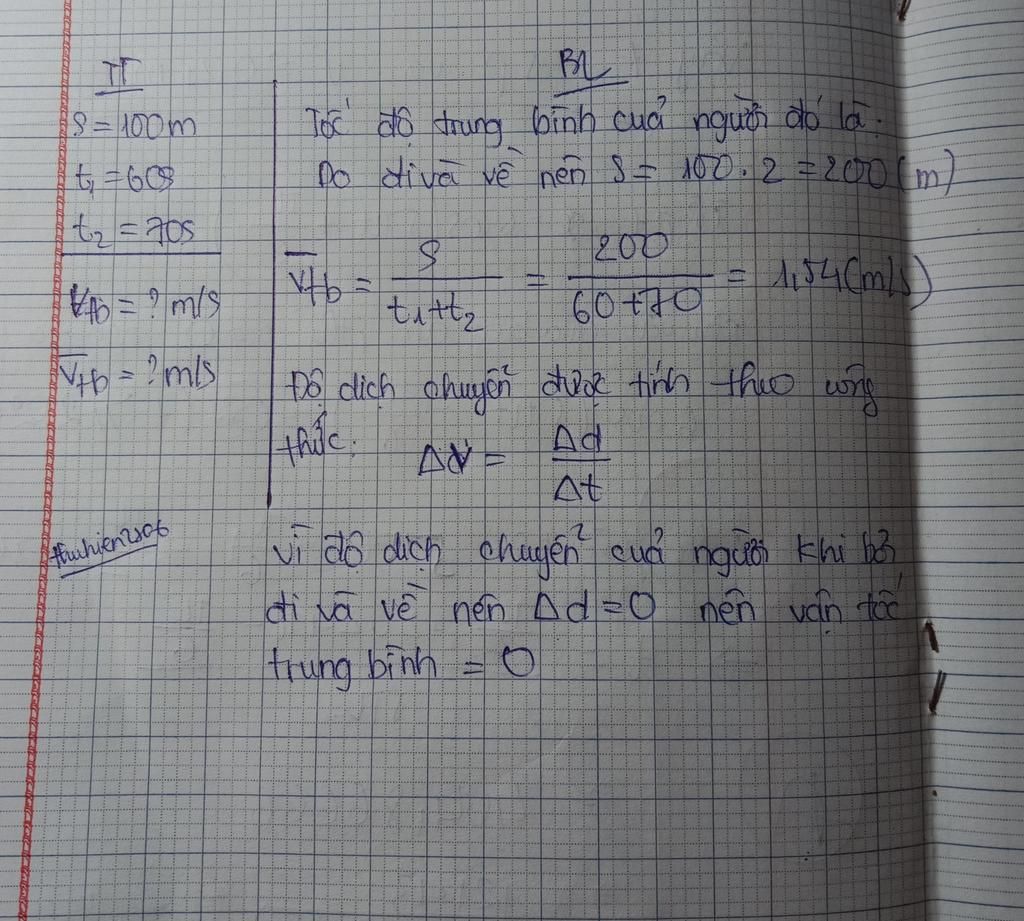 TT
S = 100m
t₁ = 60s
t₂ = 70s
Vtb = ? m/s
V̅tb = ? m/s
thuhien2506
BL
Tốc độ trung bình cuả người đó là:
Do đi và về nên S = 100 . 2 = 200 (m)
V̅tb = S / (t₁+t₂) = 200 / (60+70) = 1,54 (m/s)
Độ dịch chuyển được tính theo công
thức: Δv = Δd / Δt
Vì độ dịch chuyển cuả người khi bơi
đi và về nên Δd = 0 nên vận tốc
trung bình = 0